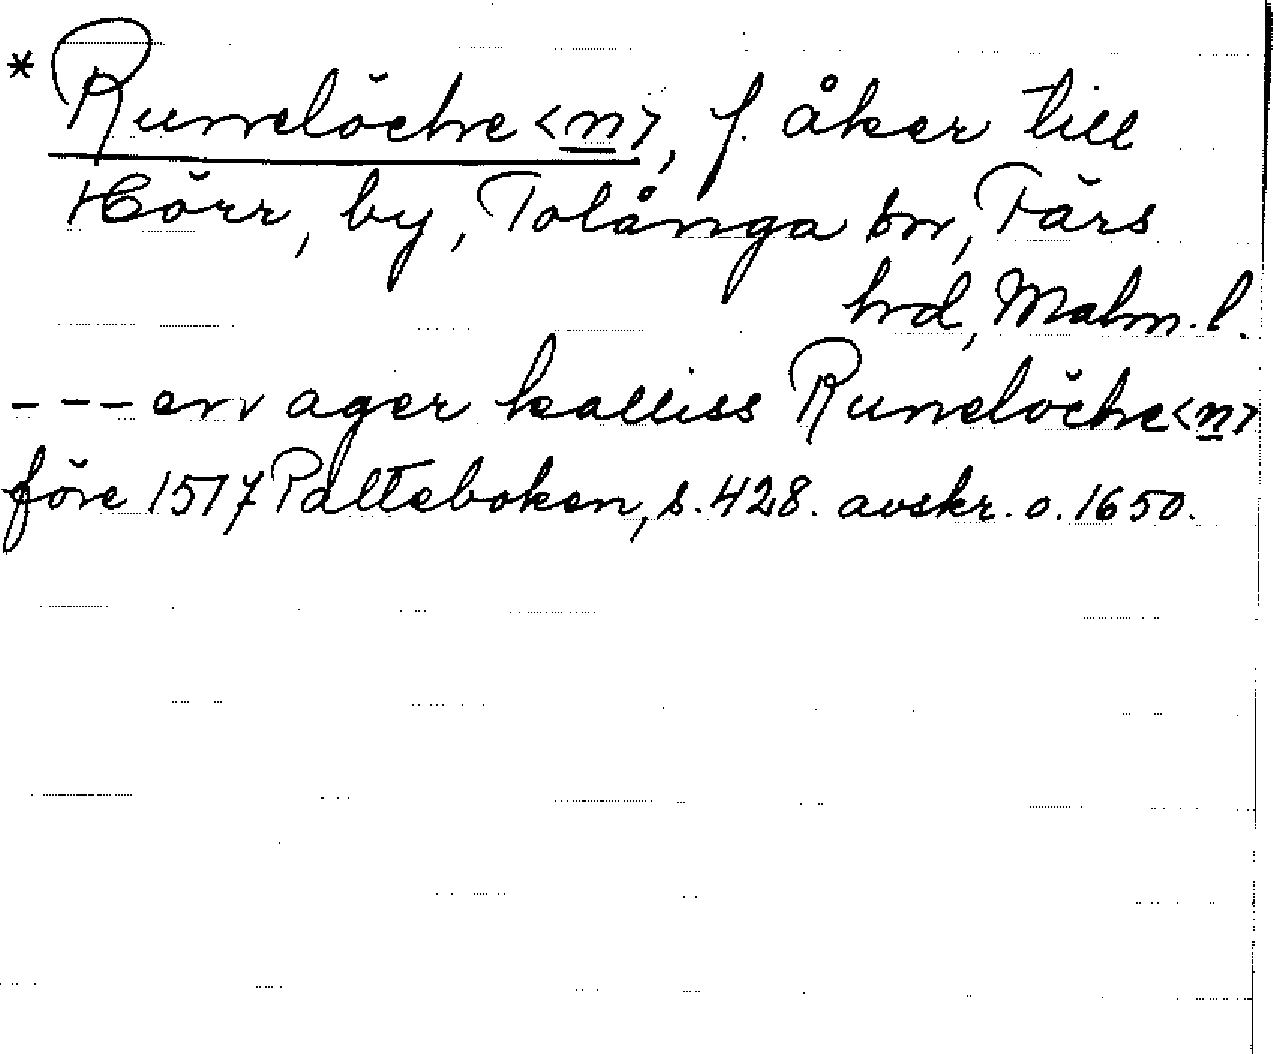 * Runelöche<n>, f. åker till
Hörr, by, Tolånga sn, Färs
hd, Malm. l.
--- en ager kalliss Runelöche<n>
före 1517 Palteboken, s. 428. avskr. o. 1650.